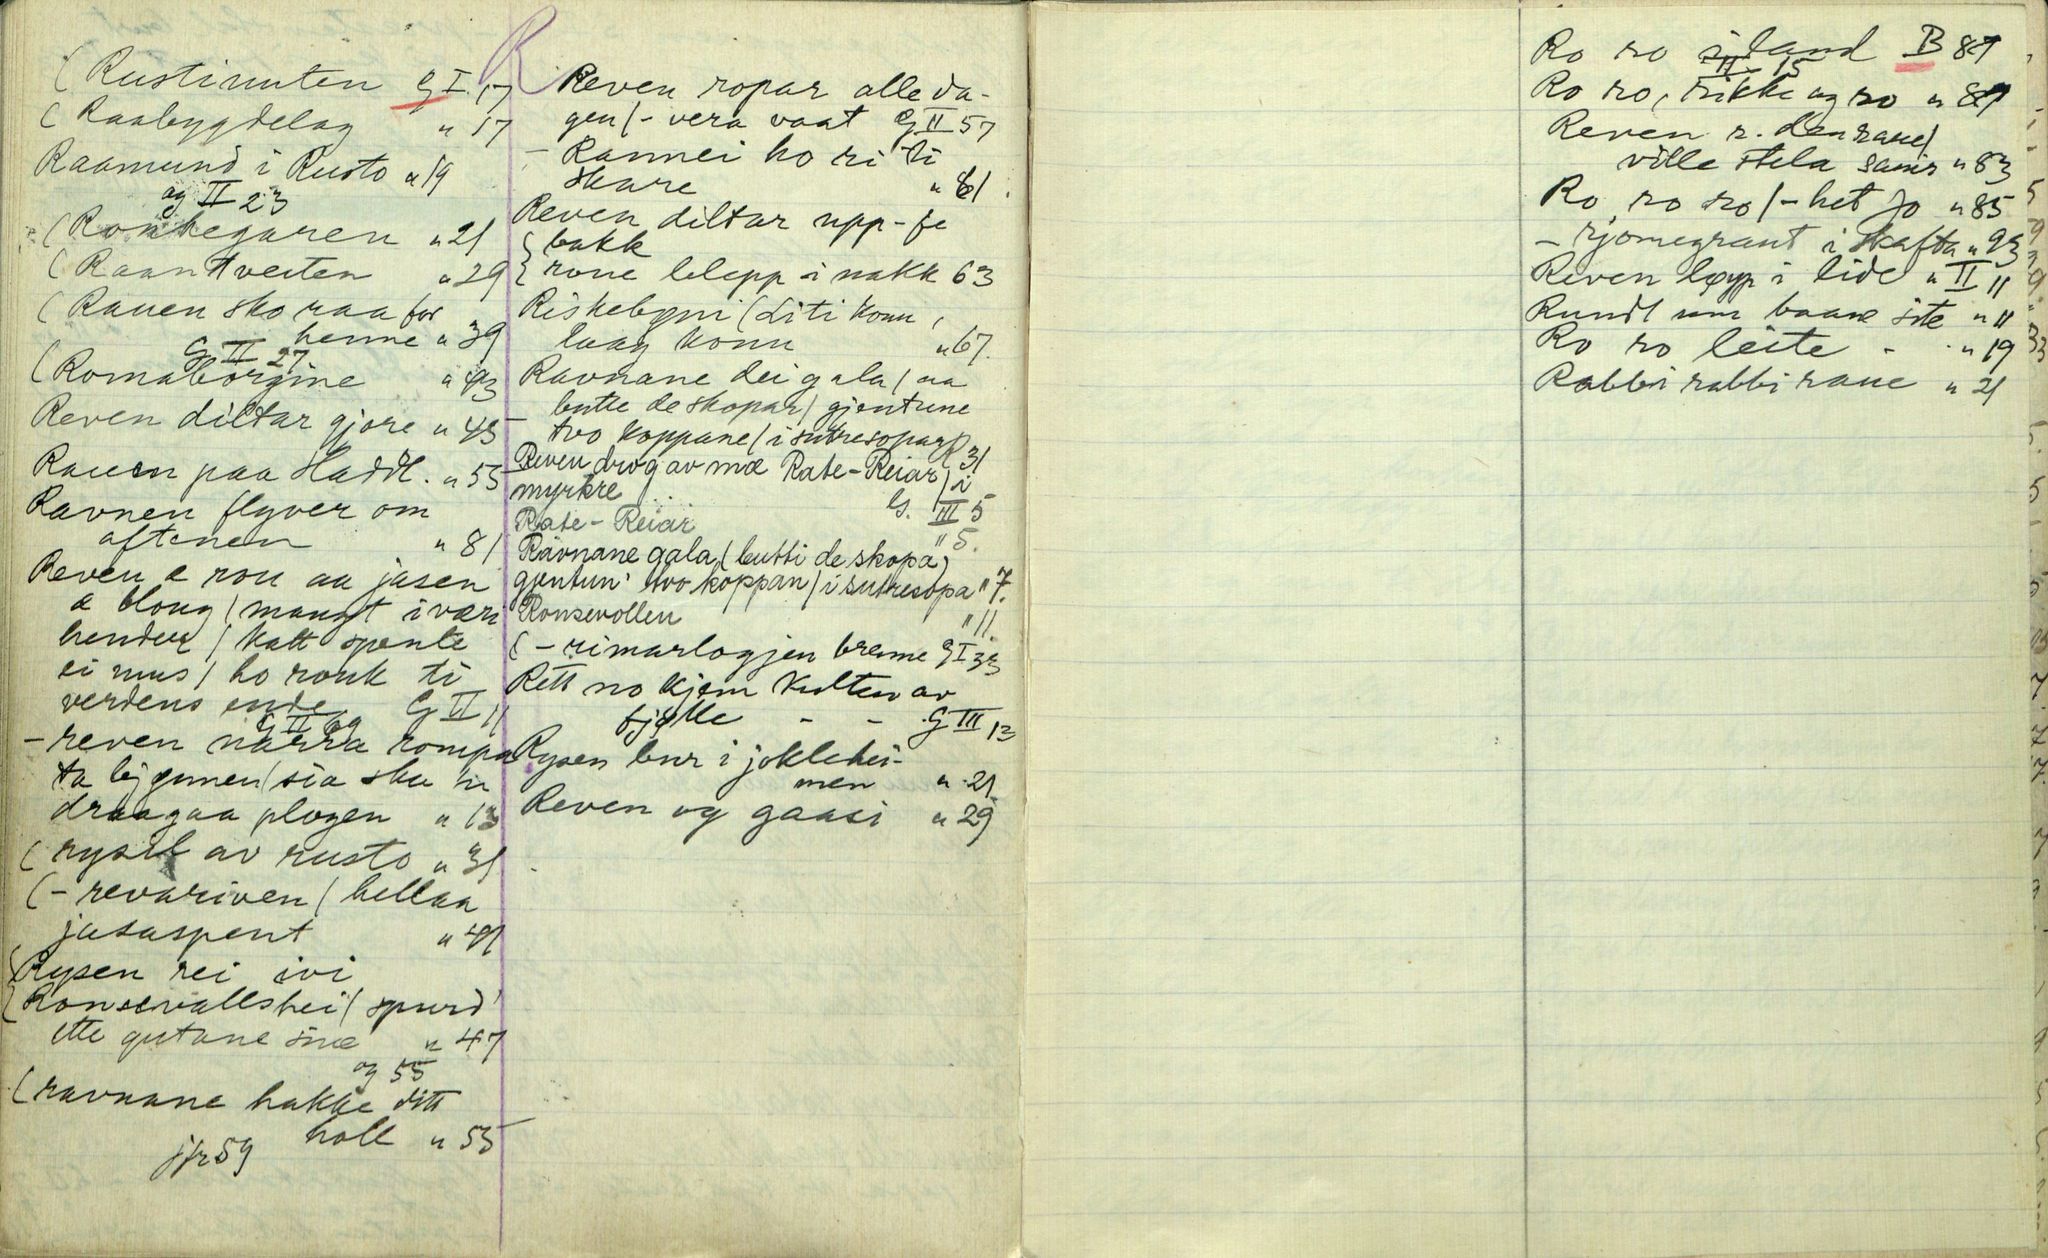 R
( Rustinuten G I 17
( Raabygdelag " 17
Raamund i Rusto " 19
og II 23
" 21
( Raantveiten " 29
( Rauen sko raa for
henne " 39
G II 27
( Romaborgine " 43
Reven diltar gjøre " 45
Rauen paa Hadd. " 55
Ravnen flyver om
aftenen " 81
Reven e rou aa jasen
e bloug / maust i væri
hender / Katt spente
ei mus / ho rouk ti
verdens ende G II 11
G II 29
- reven narra rompa
ta bjønnen / sia sku n
draagaa plogen " 13
( rysil av rusto " 31
( - revariven / hellaa
jasaspent " 41
Rysen rei ivi
Ronsevallshei / spurd'
ette gutane sine " 47
og 55
( ravnane hakke ditt
holl " 55
jfr 59
Reven ropar alle da-
gen / - vera vaat G II 57
- Rannei ho ri ti
skare " 61
Reven diltar upp-je
bakk
rove lelepp i nakk 63
Riskebyni (Liti Konn,
laag Konn " 67.
Ravnane dei gala / aa
butte de skopar / gjentune
- tvo koppane / i sutresopar R 31
Reven drog av mæ Rate-Reiar / i
myrkre G. III 5
Rate-Reiar " 5.
Ravnane gala, / butti de skopa,
gjentun' tvo koppan / i sutresopa " 7.
Ronsevollen " 11.
( - rimarlogjen brenne G I 33
Rett no kjem Kulten av
fjølle - - G III 13
Rysen bur i joklehei-
men " 21
Reven og gaasi " 29
Ro ro i land B 87
II 15
Ro ro, rikke og ro " 89
Reven r. den raue /
ville stela sauir " 83
Ro ro ro / - het Jo " 85
- rjomegraut i skafta " 93
Reven løyp i lide " II 11
Rundt um baane site " 11
Ro ro leite - - " 19
Rabbi rabbi raue " 21